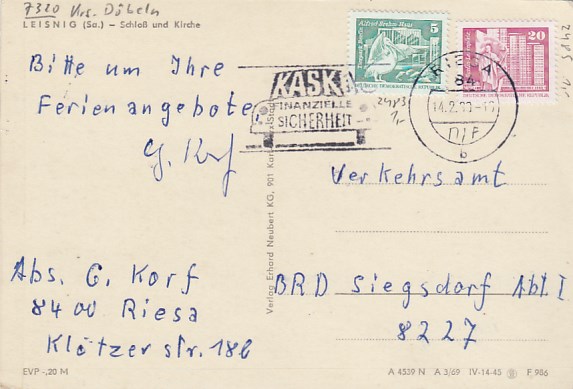 7320 Krs. Döbeln
LEISNIG (Sa.) – Schloß und Kirche
Bitte um Ihre
Ferienangebote
G. Korf
Abs. G. Korf
8400 Riesa
Klötzer str. 18b
EVP -,20 M
Verlag Erhard Neubert KG, 901 Karl-Marx-Stadt
KASKO
FINANZIELLE
SICHERHEIT
Alfred-Brehm-Haus
5
DEUTSCHE DEMOKRATISCHE REPUBLIK
20
DEUTSCHE DEMOKRATISCHE REPUBLIK
RIESA
84
14.2.90-16
b
Verkehrsamt
BRD Siegsdorf Abt. I
8227
A 4539 N A 3/69 IV-14-45 F 986